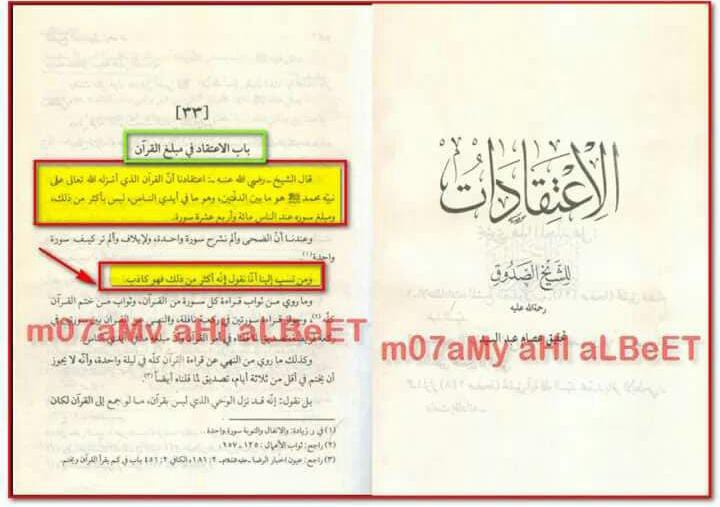 الإعتقادات
للشيخ الصدوق
رحمة الله عليه
تحقيق عصام عبد السيد
m07aMy aHl aLBeET
[٣٣]
باب الاعتقاد في مبلغ القرآن
قال الشيخ ـ رضي الله عنه ـ: اعتقادنا أنّ القرآن الذي أنزله الله تعالى على
نبيّه محمد ﷺ هو ما بين الدفّتين، وهو ما في أيدي الناس، ليس بأكثر من ذلك،
ومبلغ سوره عند الناس مائة وأربع عشرة سورة.
وعندنا أنّ الضحى وألم نشرح سورة واحدة، ولإيلاف وألم تر كيف سورة
واحدة(١).
ومن نسب إلينا أنّا نقول إنّه أكثر من ذلك فهو كاذب.
وما روي من ثواب قراءة كلّ سورة من القرآن، وثواب من ختم القرآن
كلّه(٢)،
m07aMy aHl aLBeET
وكذلك ما روي من النهي عن قراءة القرآن كلّه في ليلة واحدة، وأنّه لا يجوز
أن يختم في أقل من ثلاثة أيام، تصديق لما قلناه أيضاً(٣).
بلى نقول: إنّه قد نزل الوحي الذي ليس بقرآن، ما لو جمع إلى القرآن لكان
(١) في ر زيادة: والانفال والتوبة سورة واحدة..
(٢) راجع: ثواب الأعمال: ١٢٥ ـ ١٥٧.
(٣) راجع: عيون أخبار الرضا ـ عليه السلام ـ ٢: ١٨٦، الكافي ٢: ٤٥١ باب في كم يقرأ القرآن ويختم.